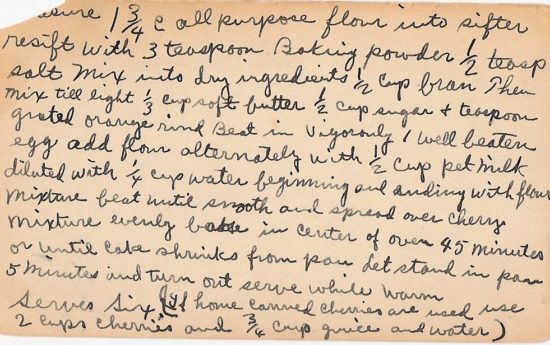 asure 1 3/4 c all purpose flour into sifter
resift with 3 teaspoon Baking powder 1/2 teasp
salt Mix into dry ingredients 1/2 cup bran Then
mix till light 1/3 cup soft butter 1/2 cup sugar + teaspoon
grated orange rind Beat in Vigorously 1 well beaten
egg add flour alternately with 1/2 Cup pet milk
diluted with 1/4 cup water beginning and ending with flour
mixture beat until smooth and spread over cherry
mixture evenly in center of oven 45 minutes
or until cake shrinks from pan let stand in pan
5 minutes and turn out serve while warm
Serves Six (If home canned cherries are used use
2 cups cherries and 3/4 cup juice and water)